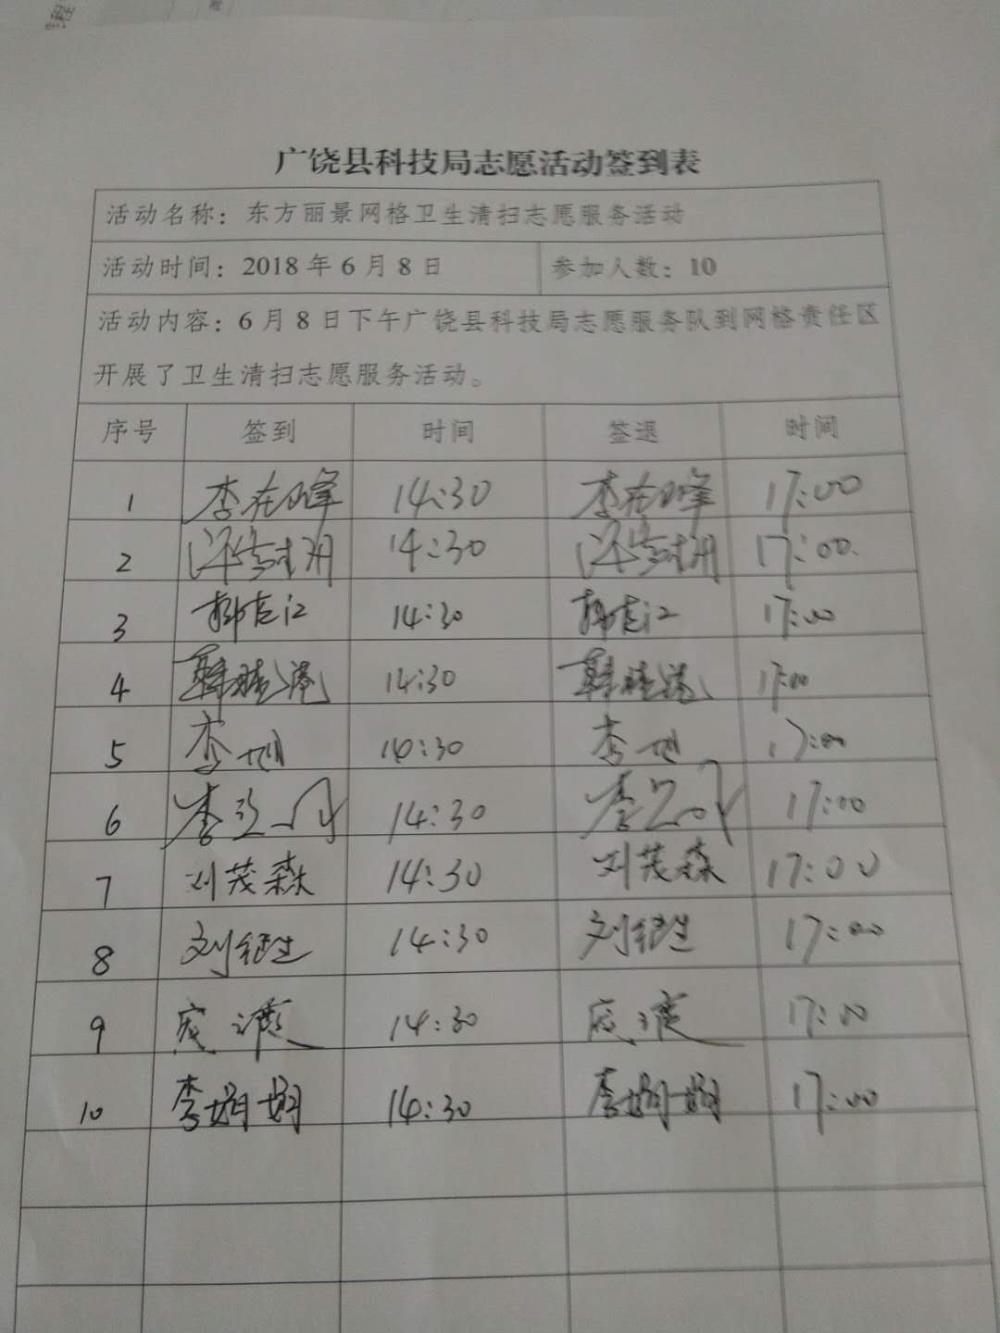 广饶县科技局志愿活动签到表
活动名称：东方丽景网格卫生清扫志愿服务活动
活动时间：2018 年 6 月 8 日 参加人数：10
活动内容：6 月 8 日下午广饶县科技局志愿服务队到网格责任区
开展了卫生清扫志愿服务活动。
序号 签到 时间 签退 时间
1 李在峰 14:30 李在峰 17:00
2 14:30 17:00
3 14:30 17:00
4 韩晓港 14:30 韩晓港 17:00
5 李旭 14:30 李旭 17:00
6 李 14:30 李 17:00
7 刘茂森 14:30 刘茂森 17:00
8 刘 14:30 刘 17:00
9 14:30 17:00
10 李娟娟 14:30 李娟娟 17:00